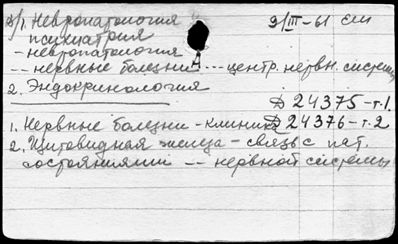 д/1. Невропатология 9/III-61 см
психиатрия
- невропатология
-- нервные болезни ... центр. нервн. системы
2. Эндокринология
Д 24375-т.1.
1. Нервные болезни - клиника Д 24376-т.2
2. Щитовидная железа - связь с пат.
состояниями -- нервной системы